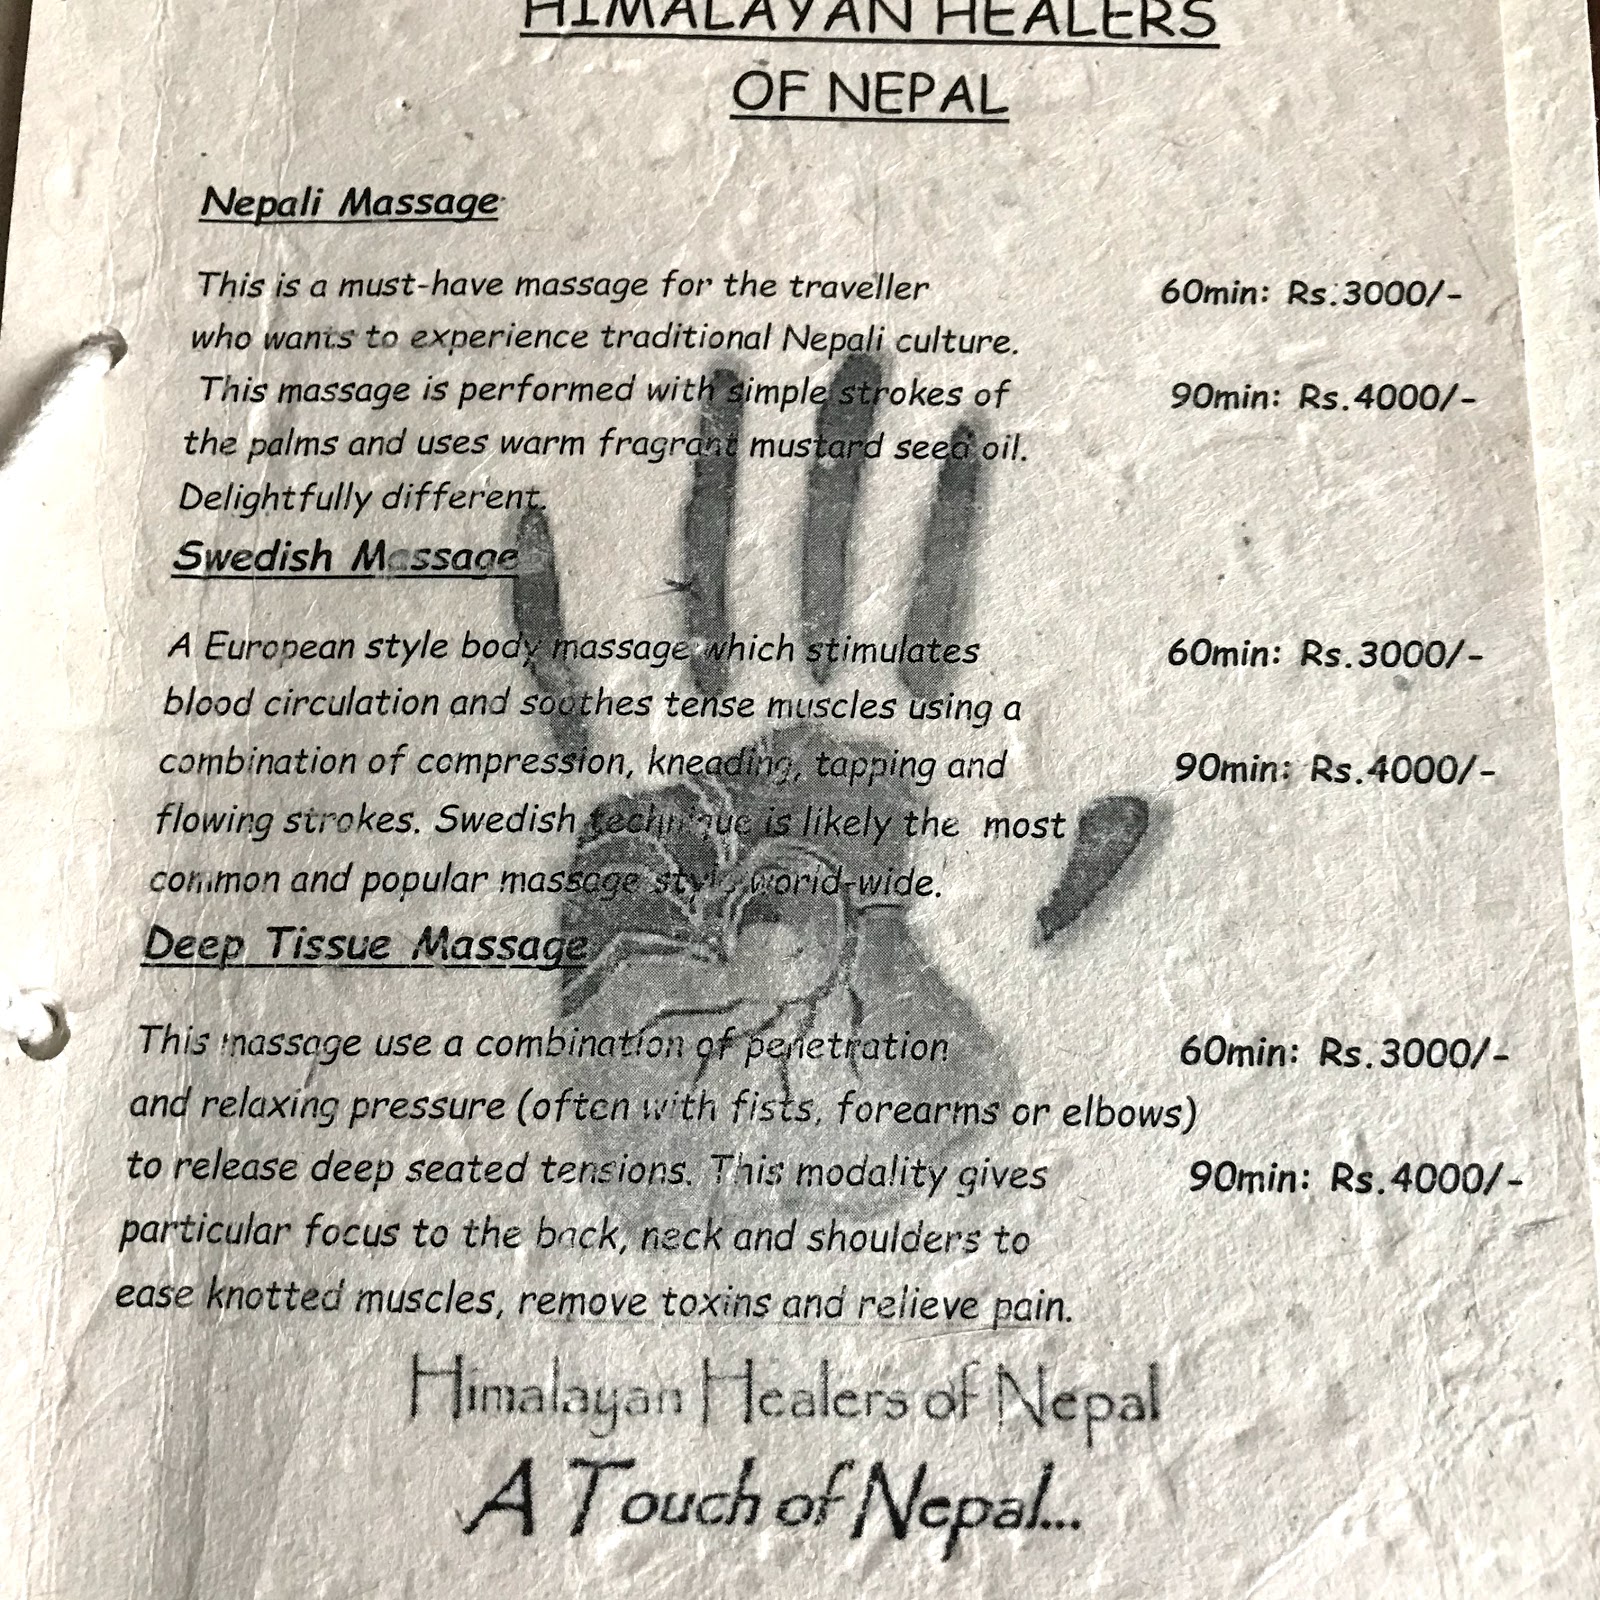 HIMALAYAN HEALERS
OF NEPAL
Nepali Massage
This is a must-have massage for the traveller
60min: Rs.3000/-
who wants to experience traditional Nepali culture.
This massage is performed with simple strokes of
90min: Rs.4000/-
the palms and uses warm fragrant mustard seed oil.
Delightfully different.
Swedish Massage
A European style body massage which stimulates
60min: Rs.3000/-
blood circulation and soothes tense muscles using a
combination of compression, kneading, tapping and
90min: Rs.4000/-
flowing strokes. Swedish technique is likely the most
common and popular massage style world-wide.
Deep Tissue Massage
This massage use a combination of penetration
60min: Rs.3000/-
and relaxing pressure (often with fists, forearms or elbows)
to release deep seated tensions. This modality gives
90min: Rs.4000/-
particular focus to the back, neck and shoulders to
ease knotted muscles, remove toxins and relieve pain.
Himalayan Healers of Nepal
A Touch of Nepal...